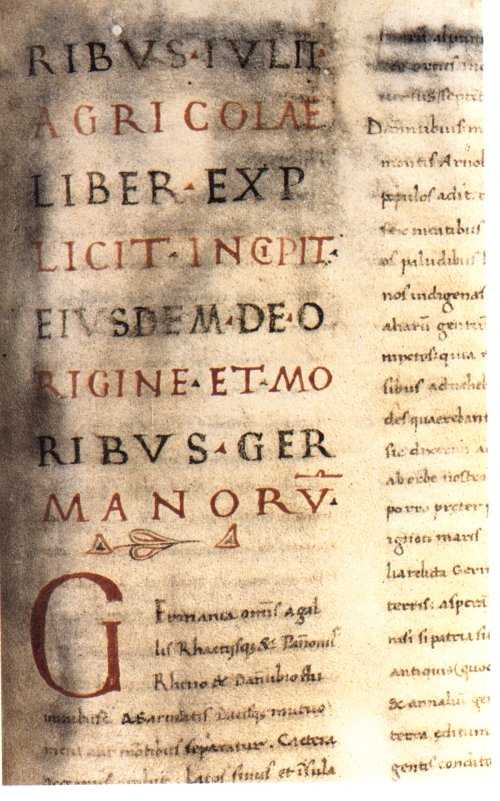 RIBVS·IVLII·
AGRICOLAE
LIBER·EXP
LICIT·INCIPIT·
EIVSDEM·DE·O
RIGINE·ET·MO
RIBVS·GER
MANORV̄·
Germania omīs agal
lis Rhaetisqȝ & Pānoniis
Rheno & Danubio flu
minibus. ASarmatis Dacisqȝ mutuo
metu aut motibus separatur. Caetera
latos sinus et īsula
montis Arnob
populos adit
of paludibus
nos indigenas
aliarū gentiū
quia
sibus
des quaerebant
ab orbe nostro
porro preter
ignoti maris
terris: asperā
nisi si patria si
antiquis (quod
& annaliū gen
terra editum
gentis condito